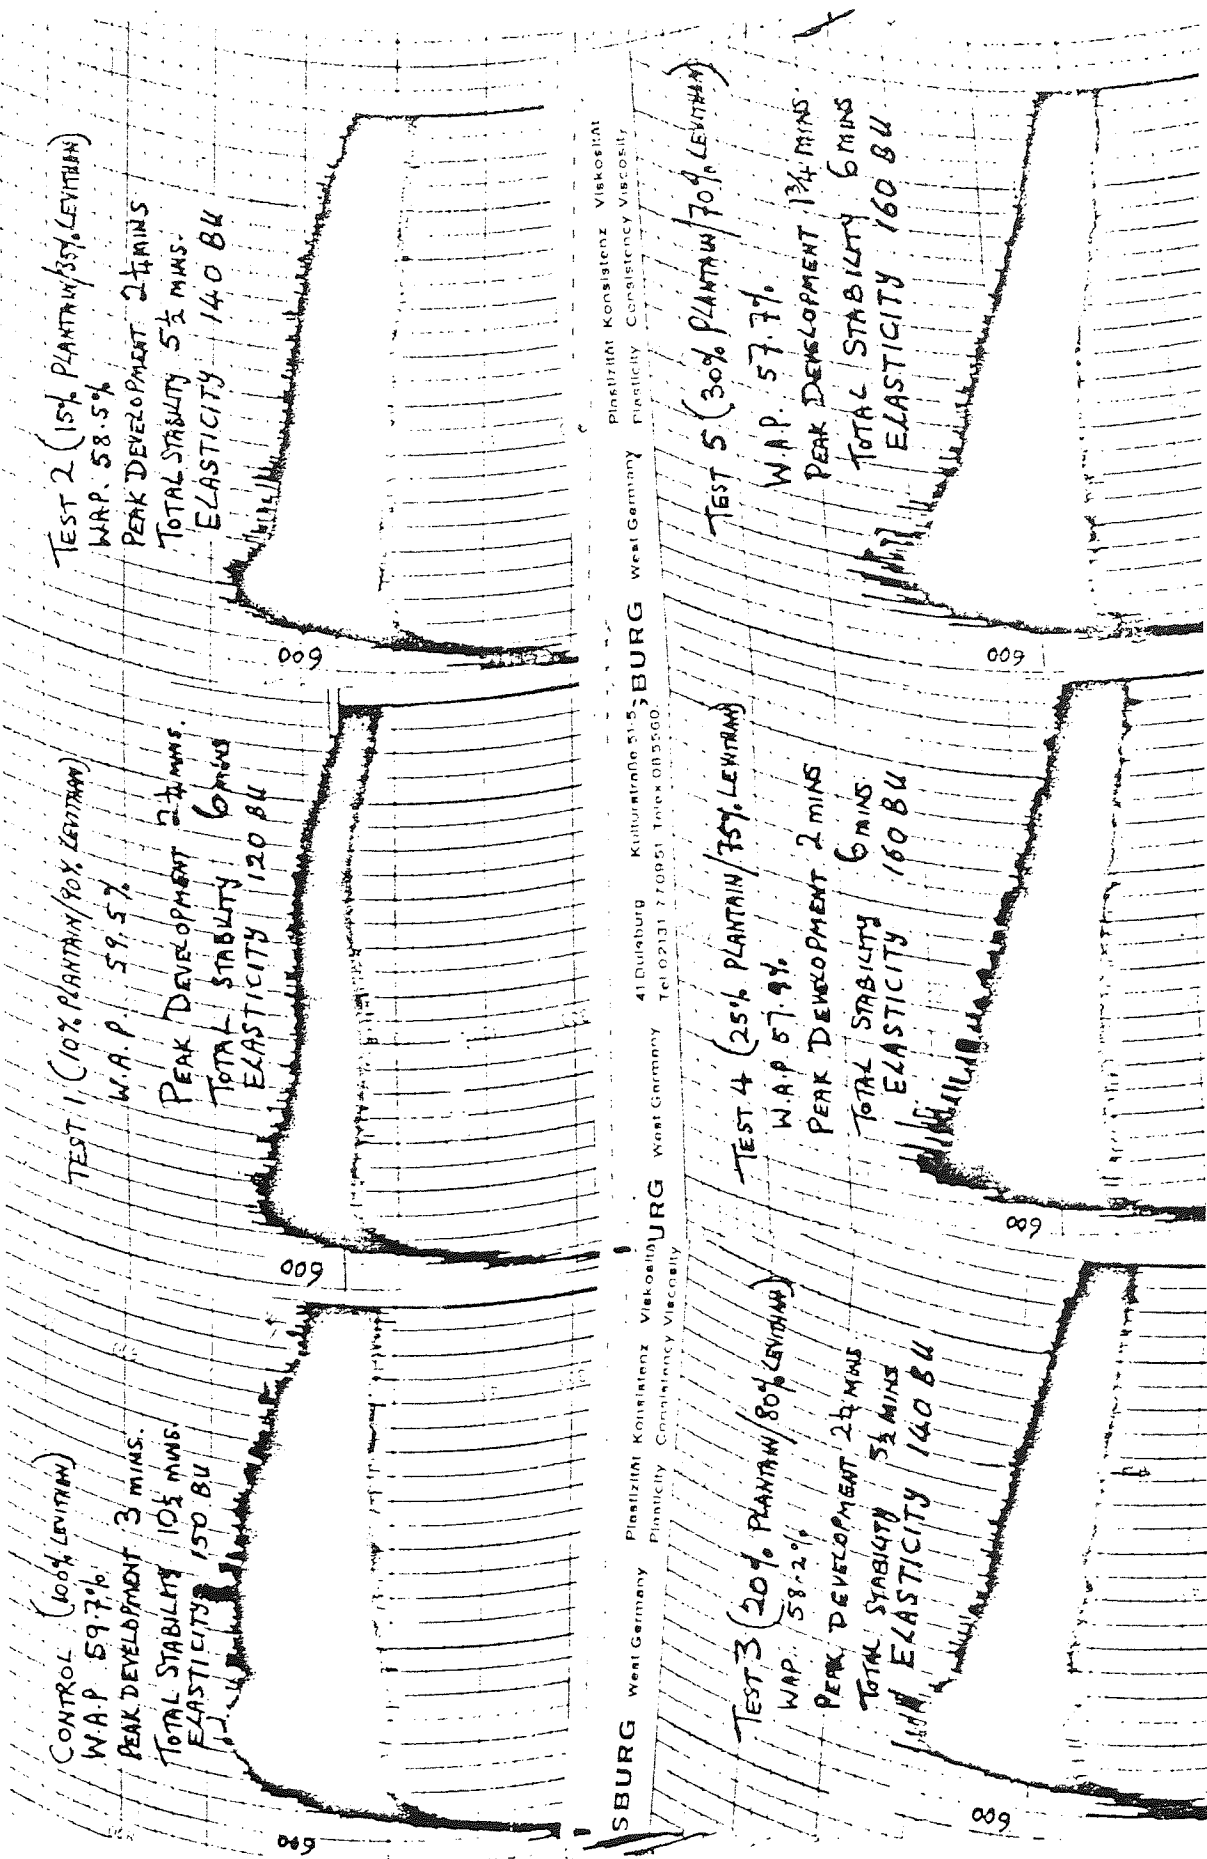 CONTROL (100% LEVITHAN)
W.A.P 59.7%
PEAK DEVELOPMENT 3 MINS.
TOTAL STABILITY 10½ MINS.
ELASTICITY 150 BU
600
TEST 1 (10% PLANTAIN/90% LEVITHAN)
W.A.P. 59.5%
PEAK DEVELOPMENT 2¼ MINS.
TOTAL STABILITY 6 MINS
ELASTICITY 120 BU
600
TEST 2 (15% PLANTAIN/35% LEVITHAN)
W.A.P. 58.5%
PEAK DEVELOPMENT 2¼ MINS
TOTAL STABILITY 5½ MINS.
ELASTICITY 140 BU
600
SBURG West Germany Plastizität Konsistenz Viskosität
Plasticity Consistency Viscosity
URG West Germany 41 Duisburg Kulturstraße 51-5
Tel 02131 770951 Telex 085560
BURG West Germany Plastizität Konsistenz Viskosität
Plasticity Consistency Viscosity
TEST 3 (20% PLANTAIN/80% LEVITHAN)
WAP. 58.2%
PEAK DEVELOPMENT MINS
TOTAL STABILITY 5½ MINS
ELASTICITY 140 BU
600
TEST 4 (25% PLANTAIN/75% LEVITHAN)
W.A.P 57.9%
PEAK DEVELOPMENT 2 MINS
TOTAL STABILITY 6 MINS
ELASTICITY 160 BU
600
TEST 5 (30% PLANTAIN/70% LEVITHAN)
W.A.P. 57.7%
PEAK DEVELOPMENT 1¾ MINS.
TOTAL STABILITY 6 MINS
ELASTICITY 160 BU
600